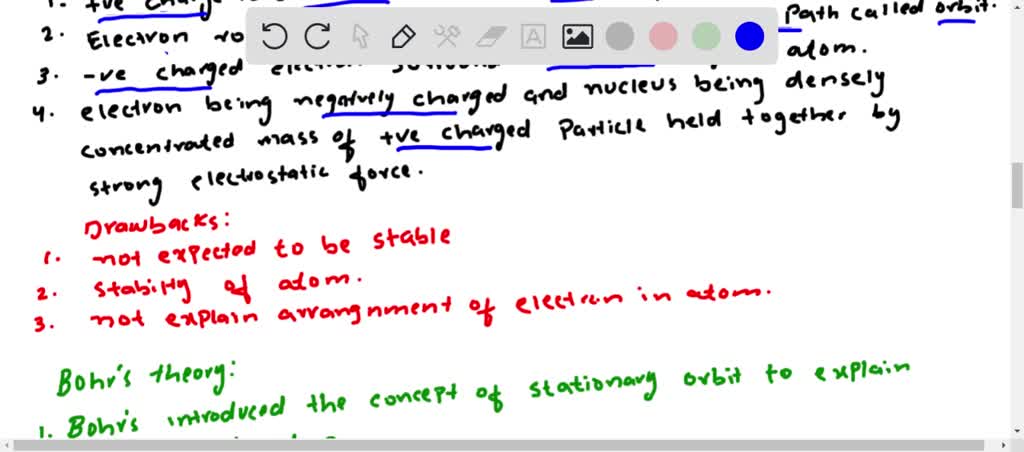 1. +ve charge
2. Electron Path called orbit.
3. -ve charged atom.
4. electron being negatively charged and nucleus being densely
concentrated mass of +ve charged Particle held together by
strong electrostatic force.
Drawbacks:
1. not expected to be stable
2. stability of atom.
3. not explain arrangnment of electron in atom.
Bohr's theory:
1. Bohr's introduced the concept of stationary orbit to explain